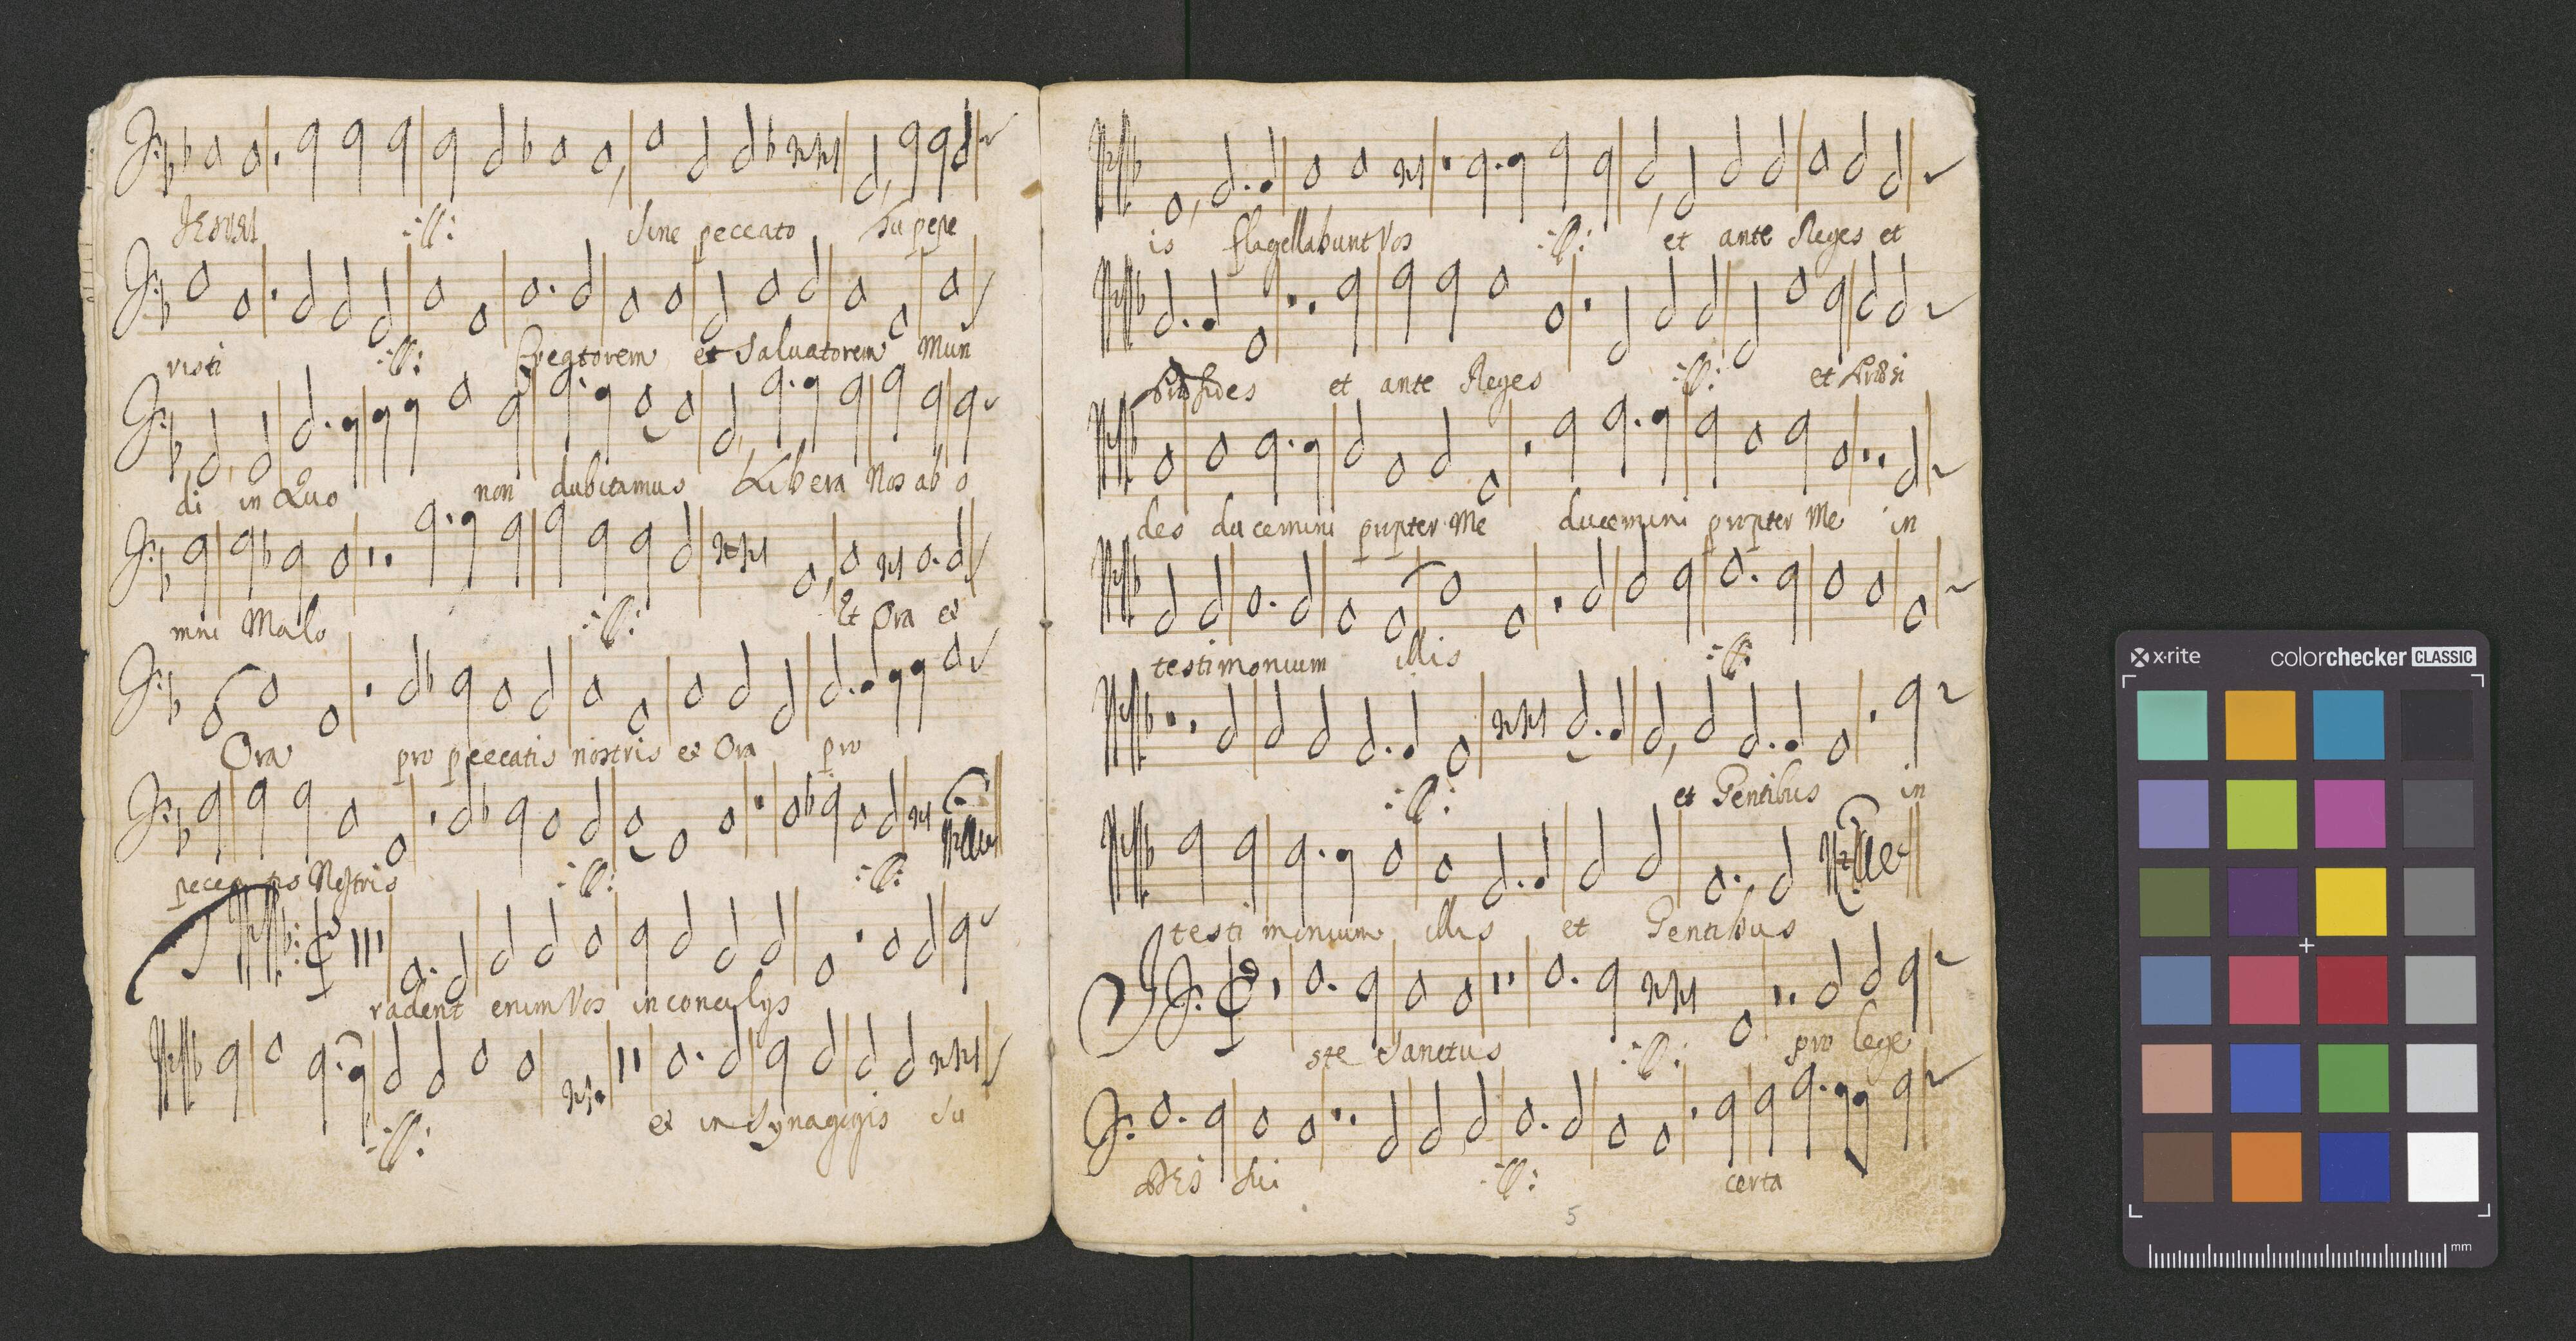 JESUM :||: Sine peccato Tu pepe
risti :||: Creatorem et Salvatorem Mun
di in Quo non dubitamus Libera Nos ab o
mni Malo :||: Et Ora et
Ora pro peccatis nostris et Ora pro
peccatis Nostris :||: :||:
Tradent enim Vos in concilys
:||: et in Synagogis Su
is flagellabunt Vos :||: et ante Reges et
Præsides et ante Reges :||: et Præsi
des ducemini propter Me ducemini propter Me in
testimonium illis :||:
:||: et Gentibus in
testimonium illis et Gentibus
Iste Sanctus :||: pro lege
DEi Sui :||: certa
5
x-rite colorchecker CLASSIC
mm